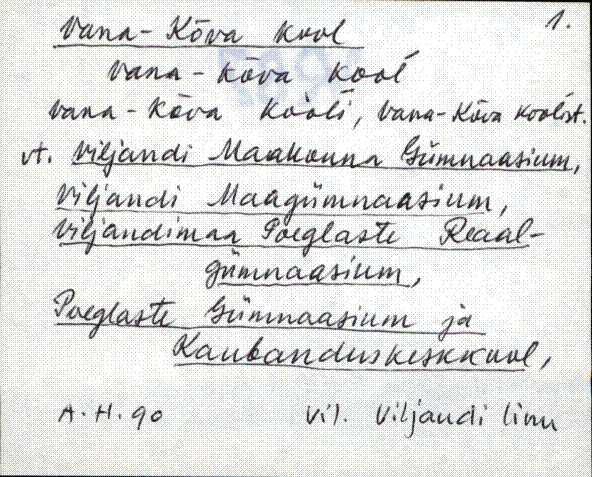 1.
Vana-Kõva kool
vana-kõva kool
vana-kõva kooli, vana-Kõva koolist.
vt. Viljandi Maakonna Gümnaasium,
Viljandi Maagümnaasium,
Viljandimaa Poeglaste Reaal-
gümnaasium,
Poeglaste Gümnaasium ja
Kaubanduskeskkool,
A.H.90 Vil. Viljandi linn